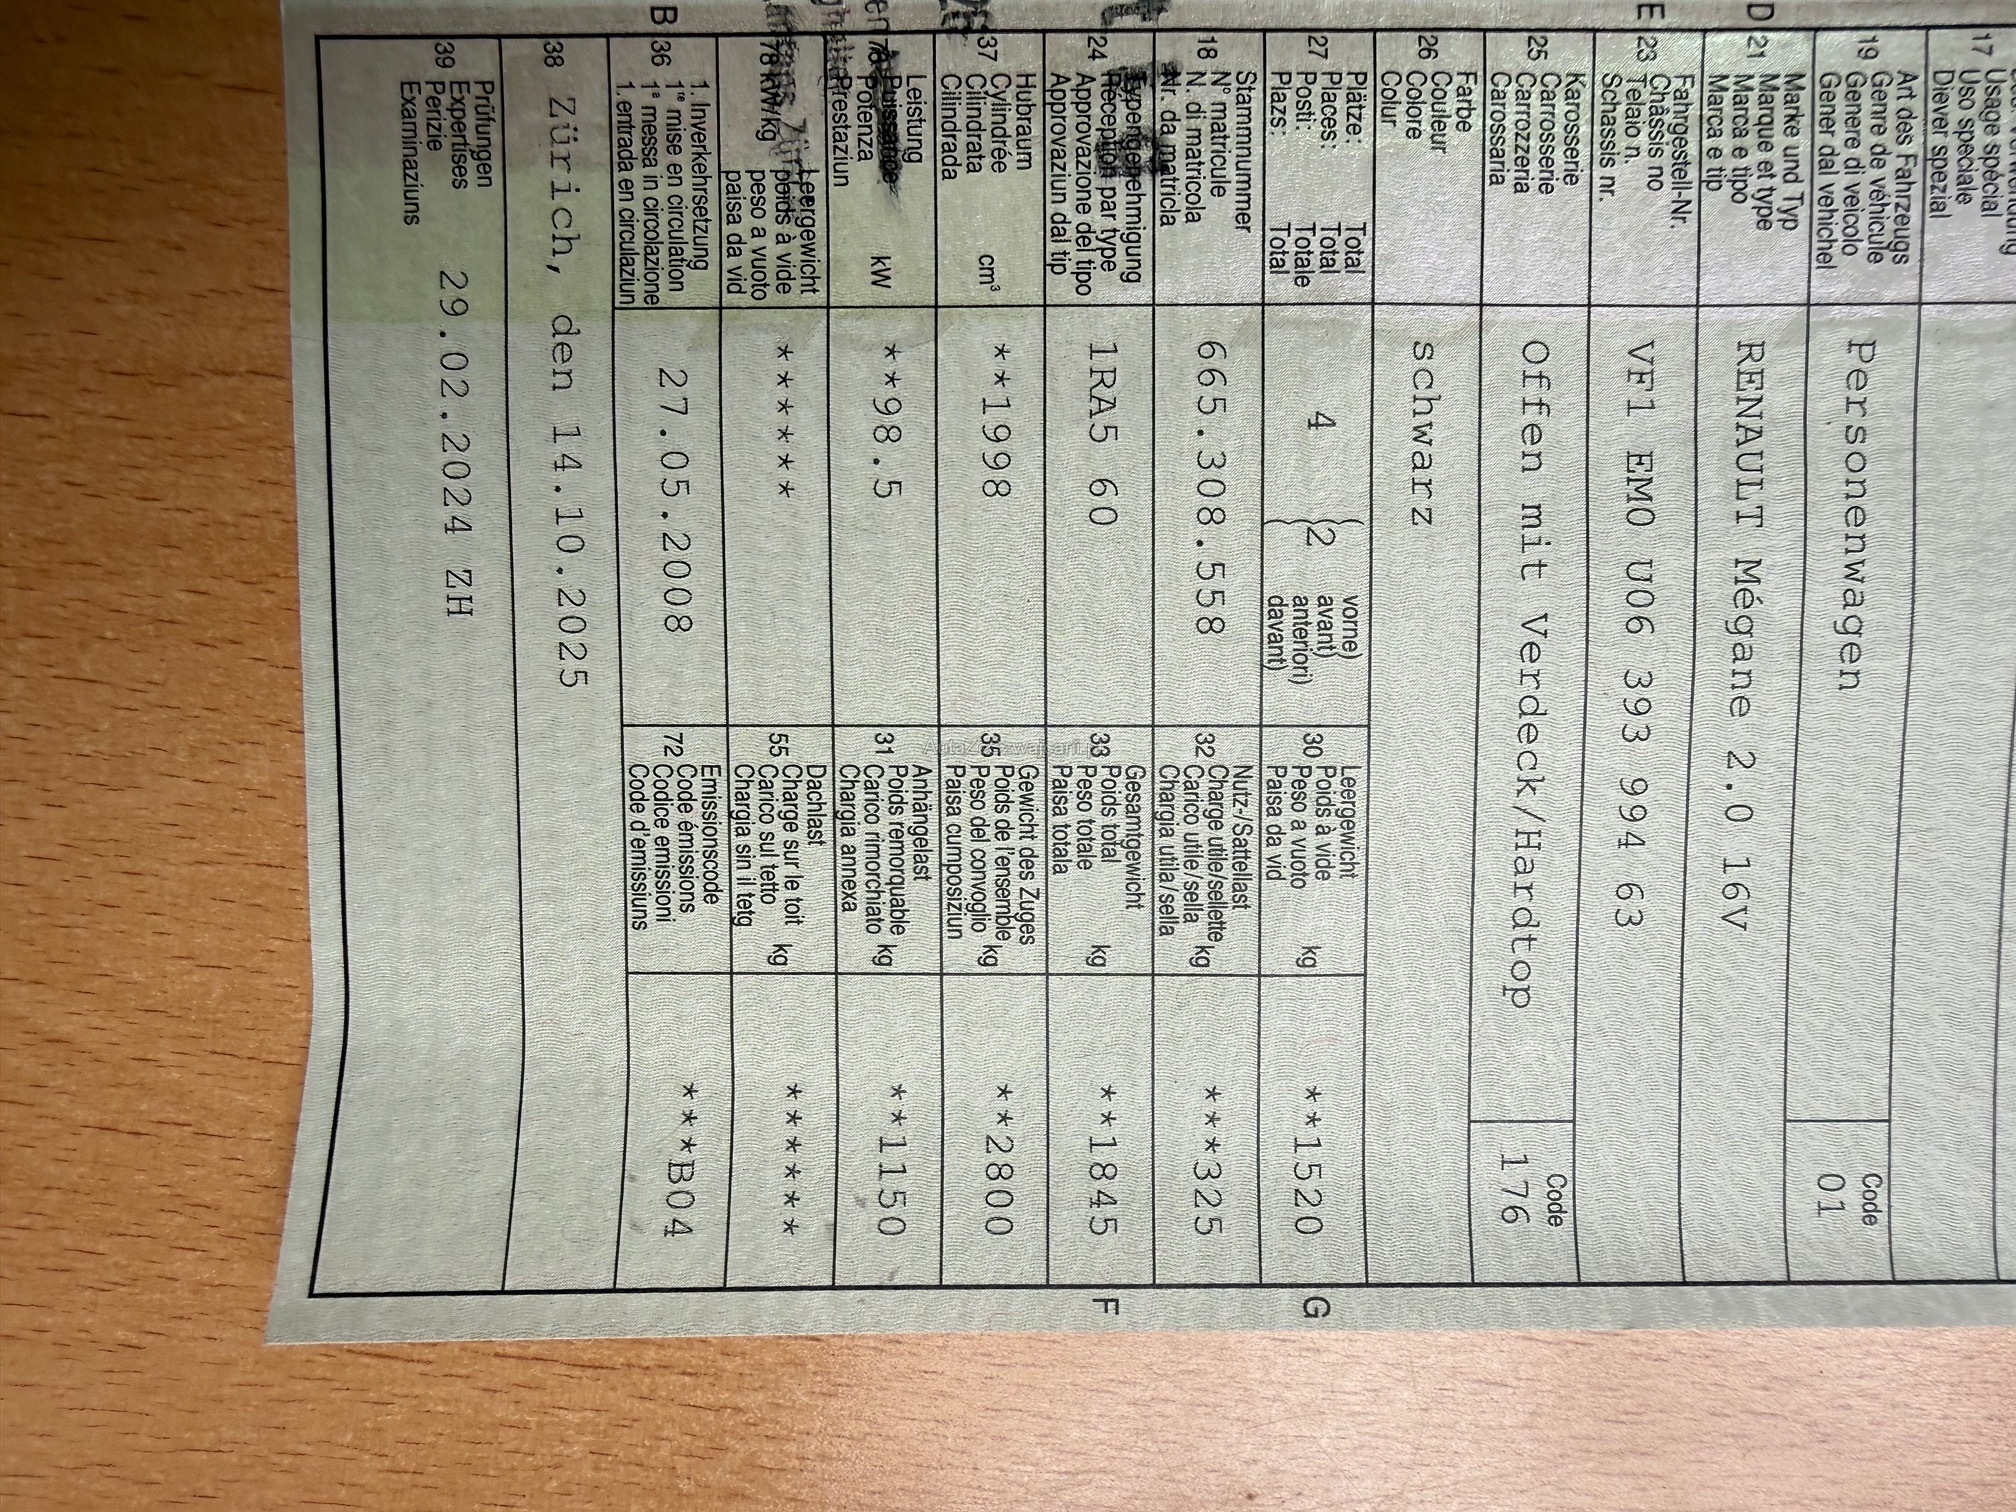 17 Usage spécial
Uso speciale
Diever spezial
Art des Fahrzeugs
19 Genre de véhicule
Genere di veicolo
Gener dal vehichel
Personenwagen
Code
01
D
Marke und Typ
21 Marque et type
Marca e tipo
Marca e tip
RENAULT Mégane 2.0 16V
E
Fahrgestell-Nr.
23 Châssis no
Telaio n.
Schassis nr.
VF1 EM0 U06 393 994 63
Karosserie
25 Carrosserie
Carrozzeria
Carossaria
Offen mit Verdeck/Hardtop
Code
176
Farbe
26 Couleur
Colore
Colur
schwarz
Plätze: Total
27 Places: Total
Posti: Totale
Plazs: Total
4 {2
vorne)
avant)
anteriori)
davant)
Leergewicht
30 Poids à vide
Peso a vuoto kg
Paisa da vid
**1520
G
Stammnummer
18 N° matricule
N. di matricola
Nr. da matricla
665.308.558
Nutz-/Sattellast
32 Charge utile/sellette
Carico utile/sella kg
Chargia utila/sella
***325
Typengenehmigung
24 Réception par type
Approvazione del tipo
Approvaziun dal tip
1RA5 60
Gesamtgewicht
33 Poids total
Peso totale kg
Paisa totala
**1845
F
Hubraum
37 Cylindrée
Cilindrata cm³
Cilindrada
**1998
Gewicht des Zuges
35 Poids de l'ensemble
Peso del convoglio kg
Paisa cumposiziun
**2800
Leistung
76 Puissance
Potenza kW
Prestaziun
**98.5
Anhängelast
31 Poids remorquable
Carico rimorchiato kg
Chargia annexa
**1150
Leergewicht
78 kW/kg poids à vide
peso a vuoto
paisa da vid
******
Dachlast
55 Charge sur le toit
Carico sul tetto kg
Chargia sin il tetg
******
B
1. Inverkehrsetzung
36 1re mise en circulation
1a messa in circolazione
1. entrada en circulaziun
27.05.2008
Emissionscode
72 Code émissions
Codice emissioni
Code d'emissiuns
***B04
38 Zürich, den 14.10.2025
Prüfungen
39 Expertises
Perizie
Examinaziuns
29.02.2024 ZH